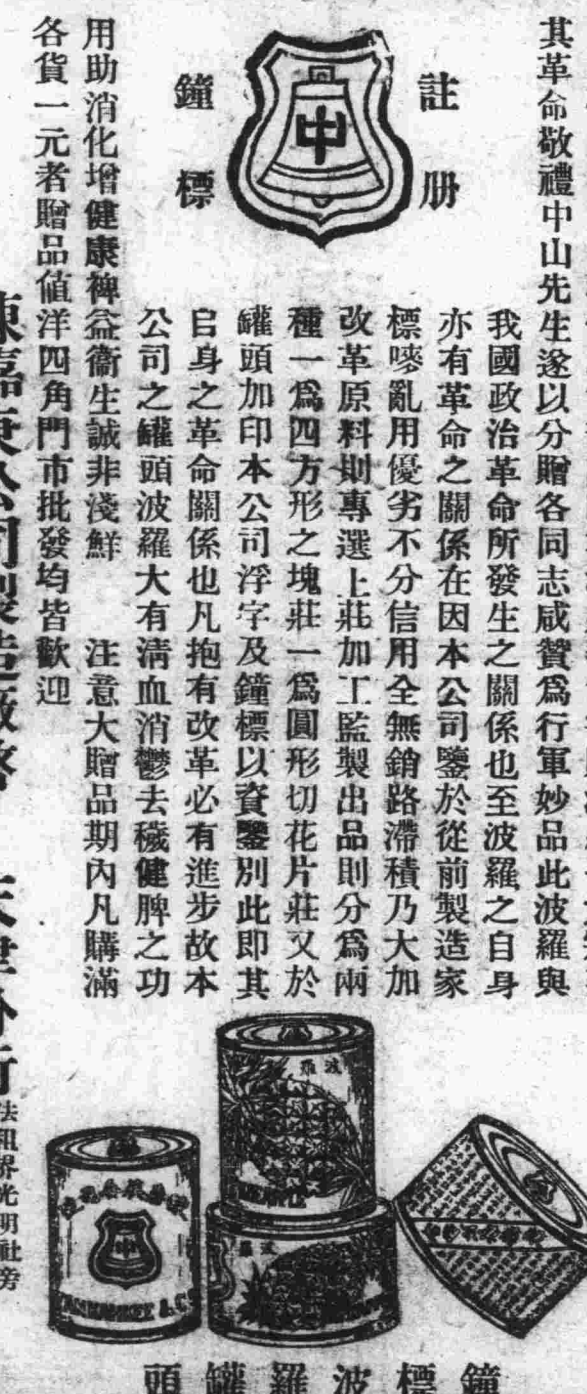 其革命敬禮中山先生遂以分贈各同志咸贊爲行軍妙品此波羅與
註册
鐘標
中
我國政治革命所發生之關係也至波羅之自身
亦有革命之關係在因本公司鑒於從前製造家
標嘜亂用優劣不分信用全無銷路滯積乃大加
改革原料則專選上莊加工監製出品則分爲兩
種一爲四方形之塊莊一爲圓形切花片莊又於
罐頭加印本公司浮字及鐘標以資鑒別此即其
自身之革命關係也凡抱有改革必有進步故本
公司之罐頭波羅大有清血消鬱去穢健脾之功
用助消化增健康裨益衞生誠非淺鮮 注意大贈品期內凡購滿
各貨一元者贈品値洋四角門市批發均皆歡迎
陳嘉庚公司製造廠啓 天津分行 法租界光明社旁
波羅
波羅
中
鐘標波羅罐頭